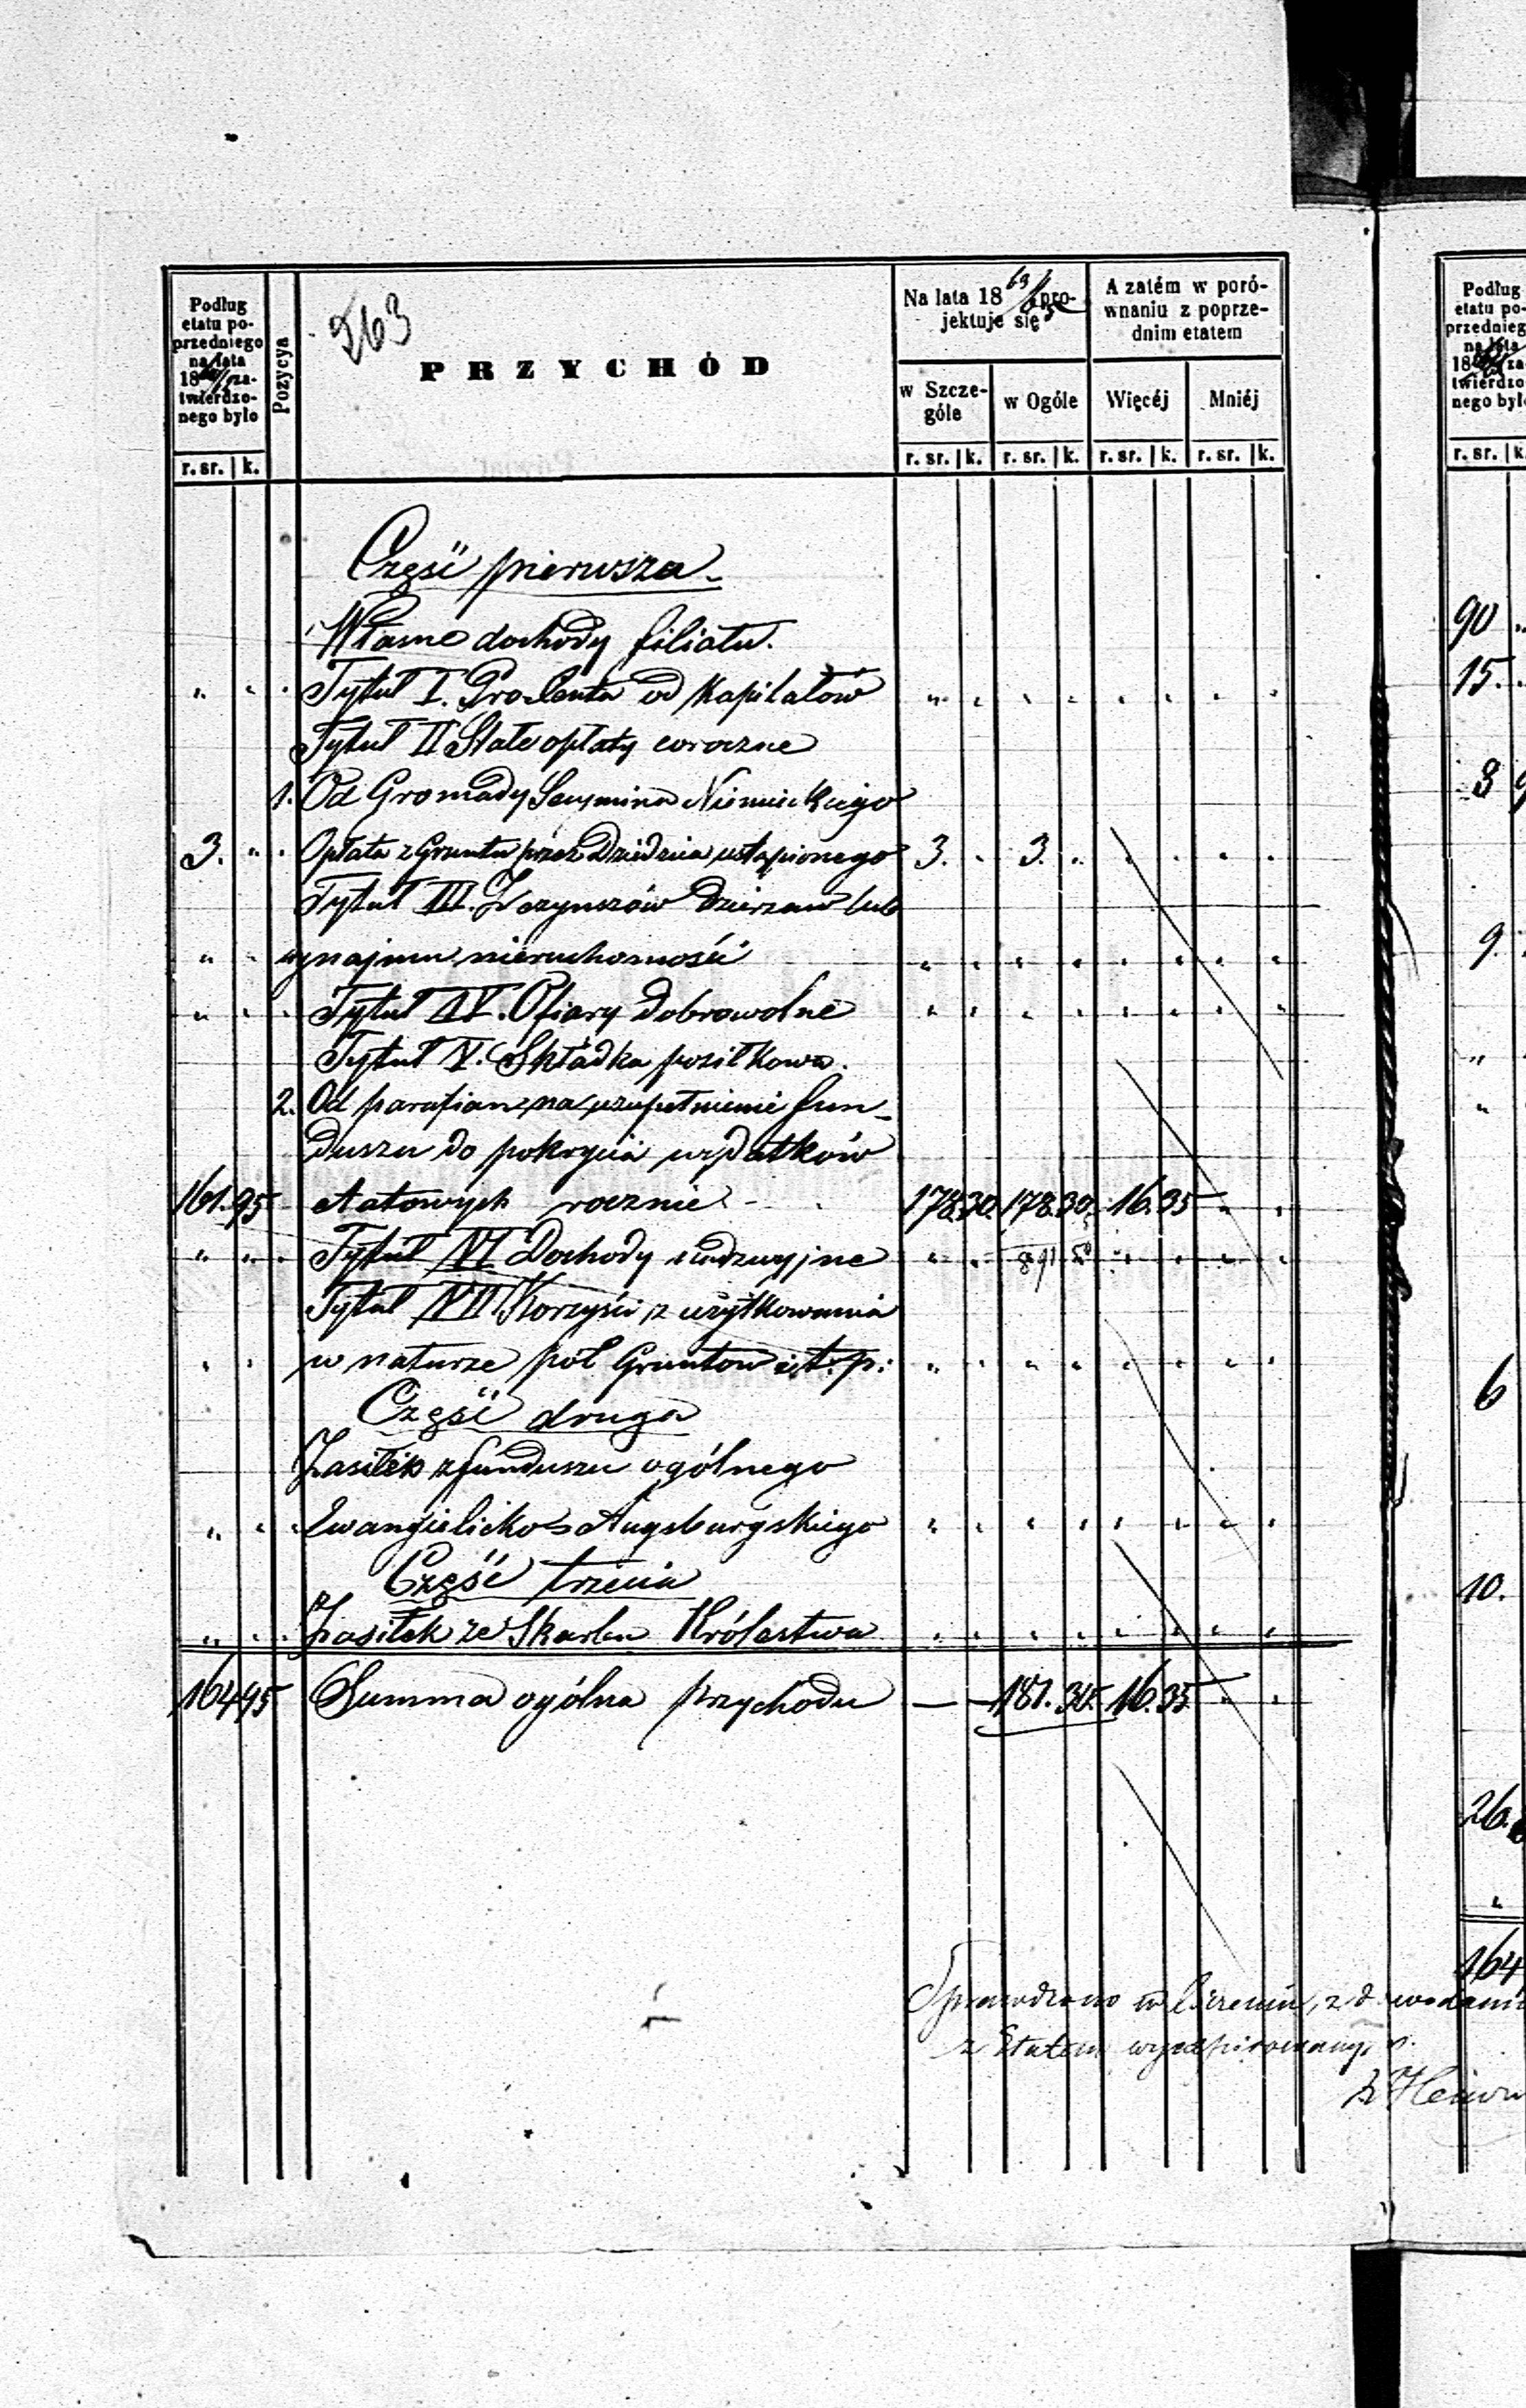 263
Podług etatu poprzedniego na lata 18 zatwierdzonego było
Pozycya
PRZYCHÓD
Na lata 18 63/65 projektuje się
A zatém w porównaniu z poprzednim etatem
w Szczególe
w Ogóle
Więcéj
Mniéj
r. sr. k. r. sr. k. r. sr. k. r. sr. k. r. sr. k.
Część pierwsza
Własne dochody filiału.
" " Tytuł I. Procenta od Kapitałów " " " " " " " "
Tytuł II Stałe opłaty coroczne
1. Od Gromady Secymina Niemieckiego
3. " Opłata z Gruntu przez Dziedzica ustąpionego 3. " 3. " " " " "
Tytuł III. Z czynszów Dzierzaw lub
" " wynajmu nieruchomości " " " " " " " "
" " Tytuł IV. Ofiary dobrowolne " " " " " " " "
Tytuł V. Składka posiłkowa.
2. Od parafian na uzupełnienie fun-
duszu do pokrycia wydatków
161.95 etatowych rocznie 178.30. 178.30. 16.35 " "
" " Tytuł VI Dochody " " " " " "
Tytuł VII Korzyści z użytkowania
" " w naturze pól Gruntow i t. p: " " " " " " " "
Część druga
Zasiłek z funduszu ogólnego
" " Ewangielicko Augsburgskiego " " " " " " " "
Część trzecia
" " Zasiłek ze Skarbu Królestwa " " " " " " " "
164 95 Summa ogólna przychodu — — 181.30. 16.35 " "
Sprawdzono
z Etatem
Podług etatu po- przednieg na lata 18 za twierdzo nego był
r. sr. k
90 "
15.
3 9
9.
"
"
6
10.
26.
"
164